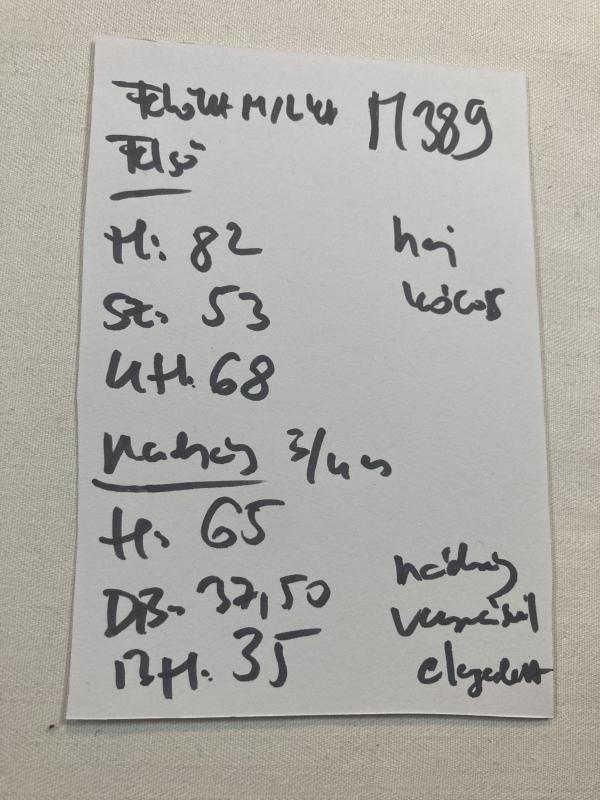 Felnőtt M/L-es M389
Felső
H: 82 haj
Sz. 53 kócos
UH. 68
Nadrág 3/4 es
H: 65
DB. 37,50 nadrág
BH. 35 elengedett